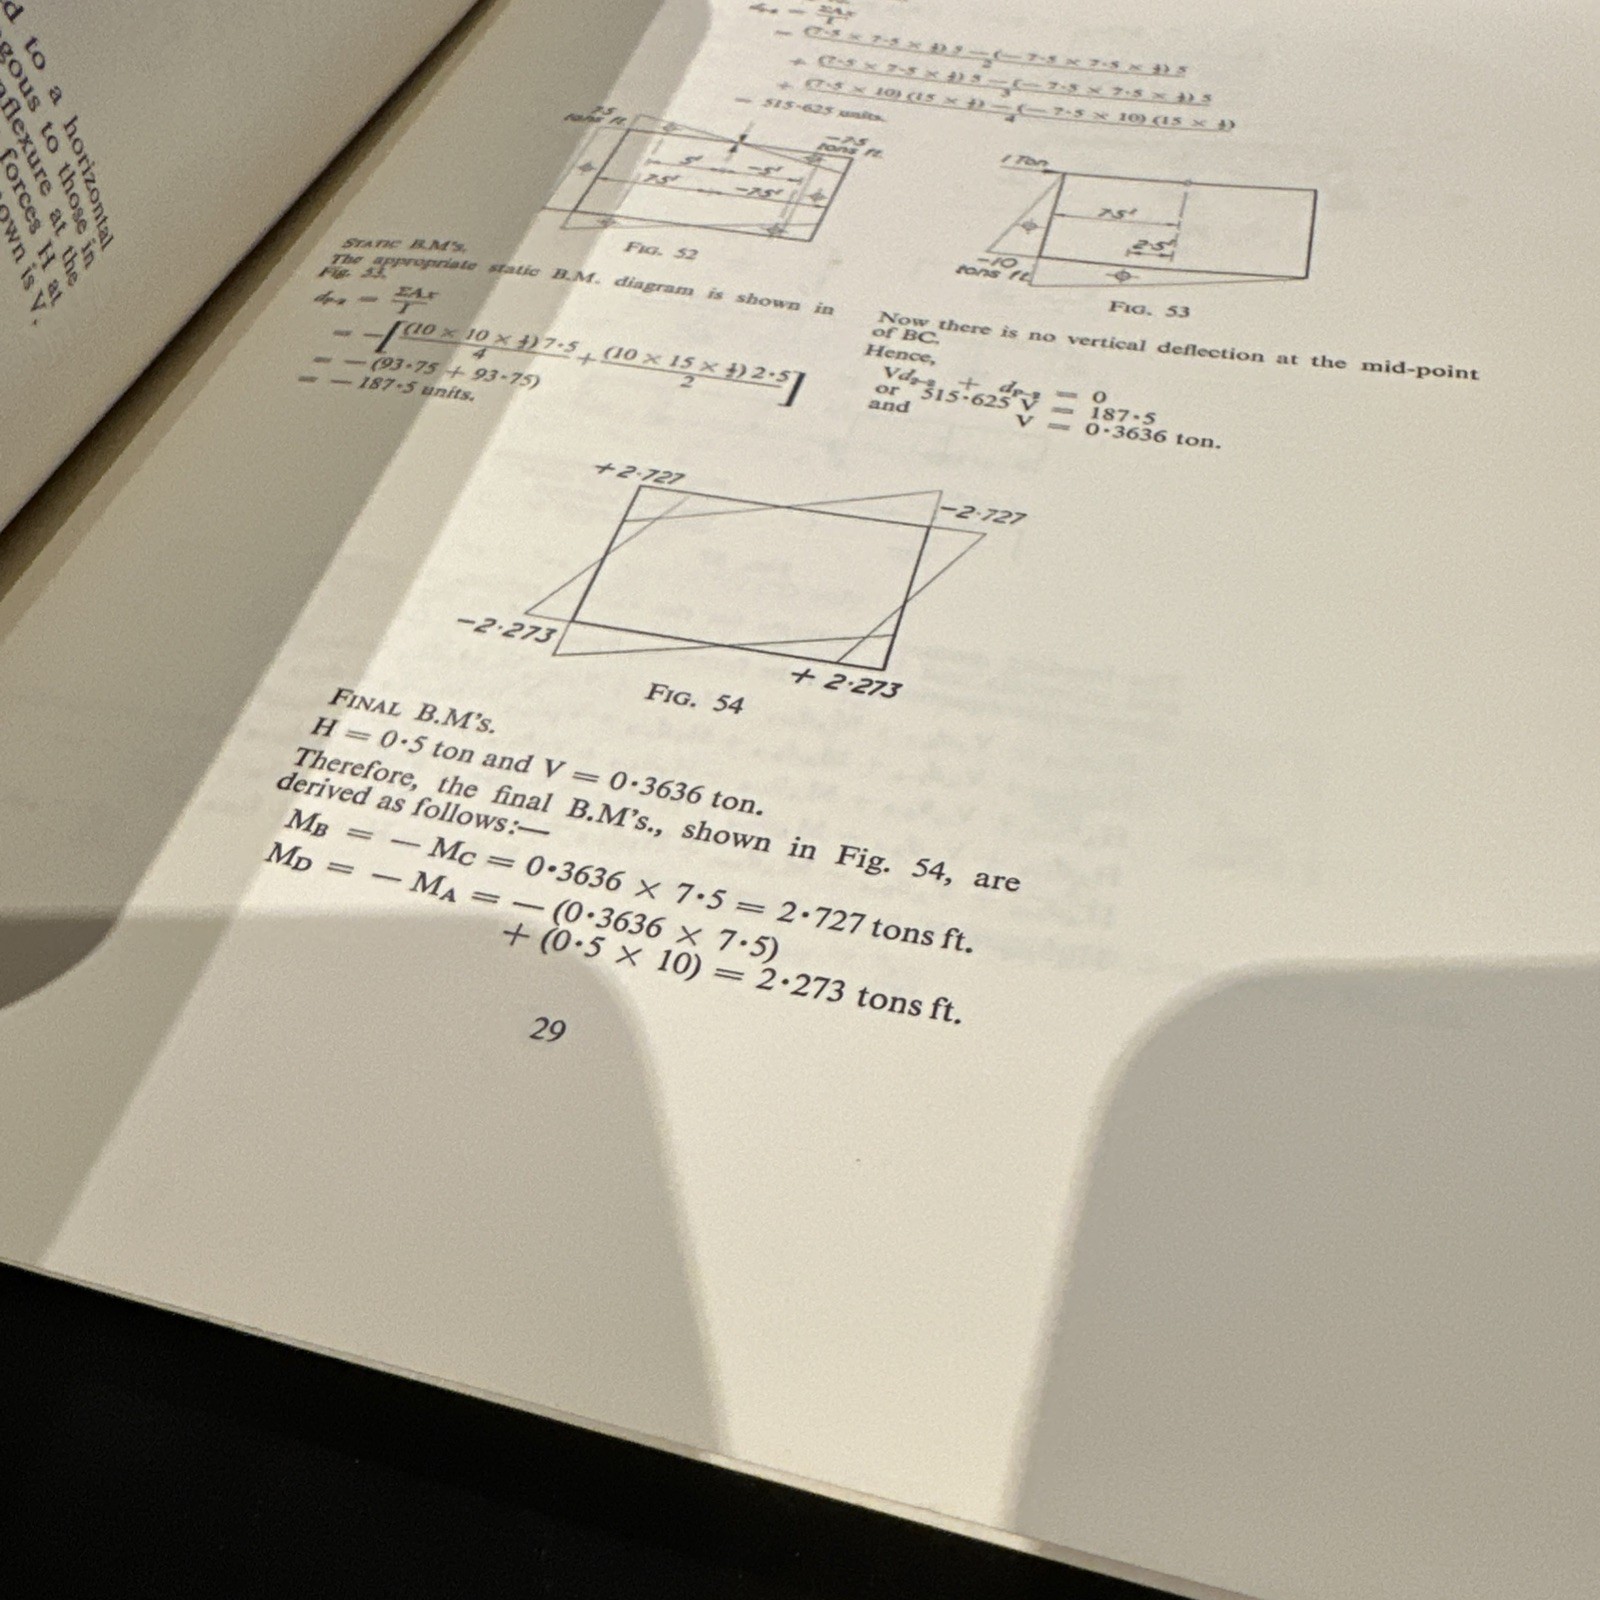 d to a horizontal
gous to those in
nflexure at the
forces H at
own is V.
= ΣAx
I
= (7·5 × 7·5 × ½) 5 — (— 7·5 × 7·5 × ½) 5
2
+ (7·5 × 7·5 × ½) 5 — (— 7·5 × 7·5 × ½) 5
3
+ (7·5 × 10) (15 × ½) — (— 7·5 × 10) (15 × ½)
4
= 515·625 units.
7·5
tons ft.
−7·5
tons ft.
5′
−5′
7·5′
−7·5′
FIG. 52
1 Ton
7·5′
2·5′
−10
tons ft.
FIG. 53
STATIC B.M's.
The appropriate static B.M. diagram is shown in
Fig. 53.
= ΣAx
I
= −[(10 × 10 × ½) 7·5 + (10 × 15 × ½) 2·5]
4 2
= — (93·75 + 93·75)
= — 187·5 units.
Now there is no vertical deflection at the mid-point
of BC.
Hence,
= 0
or 515·625 V = 187·5
and V = 0·3636 ton.
+2·727
−2·727
−2·273
+ 2·273
FIG. 54
FINAL B.M's.
H = 0·5 ton and V = 0·3636 ton.
Therefore, the final B.M's., shown in Fig. 54, are
derived as follows:—
MB = — MC = 0·3636 × 7·5 = 2·727 tons ft.
MD = — MA = — (0·3636 × 7·5)
+ (0·5 × 10) = 2·273 tons ft.
29